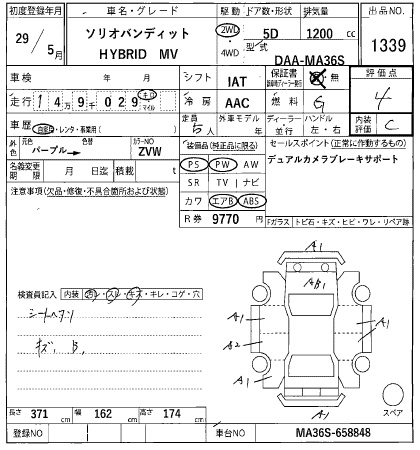 初度登録年月 車名・グレード 駆動 ドア数・形状 排気量 出品NO
29/5月 ソリオバンディット HYBRID MV 2WD 4WD 5D 1200 cc 1339
型式 DAA-MA36S
車検 年 月 シフト IAT 保証書 有・無 評価点
走行 14万9千029 キロ マイル 冷房 AAC 燃料 G 4
車歴 自家用・レンタ・事業用( ) 定員 5人 外車モデル年 年 ディーラー・並行 ハンドル 左・右 内装評価 C
外色 元色 パープル→ 色替 カラーNO ZVW 装備品(純正品に限る) セールスポイント(正常に動作するもの)
名義変更期限 月 日迄 積載 t PS PW AW デュアルカメラブレーキサポート
注意事項(欠品・修復・不具合箇所および状態) SR TV ナビ
カワ エアB ABS
R券 9770 円 Fガラス トビ石・キズ・ヒビ・ワレ・リペア跡
A1
AB1
A1 A1
A2 A1
A1
A1
スペア
検査員記入 内装 汚レ・スレ・キズ・キレ・コゲ・穴
シートヘタリ
キズ、B、
長さ 371 cm 幅 162 cm 高さ 174 cm
登録NO 車台NO MA36S-658848